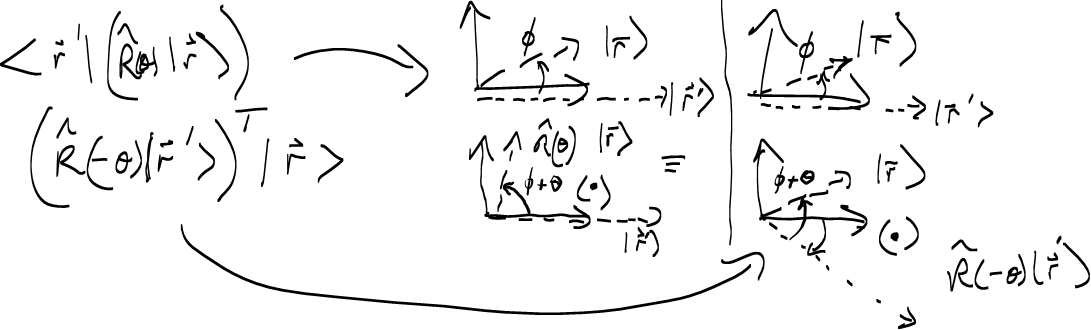 < r⃗′ | ( R̂(θ) | r⃗ > )
( R̂(-θ) | r⃗′ > )ᵀ | r⃗ >
ϕ | r⃗ >
| r⃗′ >
R̂(θ) | r⃗ >
ϕ+θ (•) ≡
| r⃗′ >
ϕ | r⃗ >
| r⃗′ >
ϕ+θ | r⃗ >
(•)
R̂(-θ) | r⃗′ >